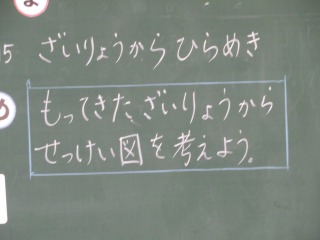 15 ざいりょうからひらめき
め
もってきた、ざいりょうから
せっけい図を考えよう。